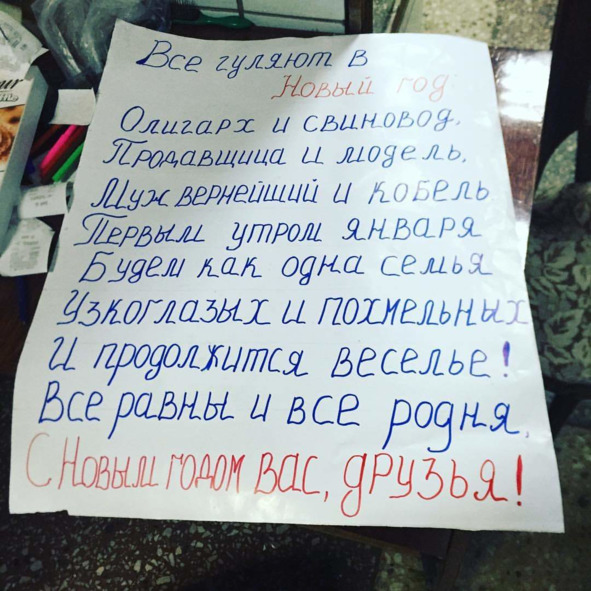 Все гуляют в
Новый год:
Олигарх и свиновод,
Продавщица и модель,
Муж вернейший и кобель
Первым утром января
Будем как одна семья
Узкоглазых и похмельных
И продолжится веселье!
Все равны и все родня,
С Новым годом вас, друзья!